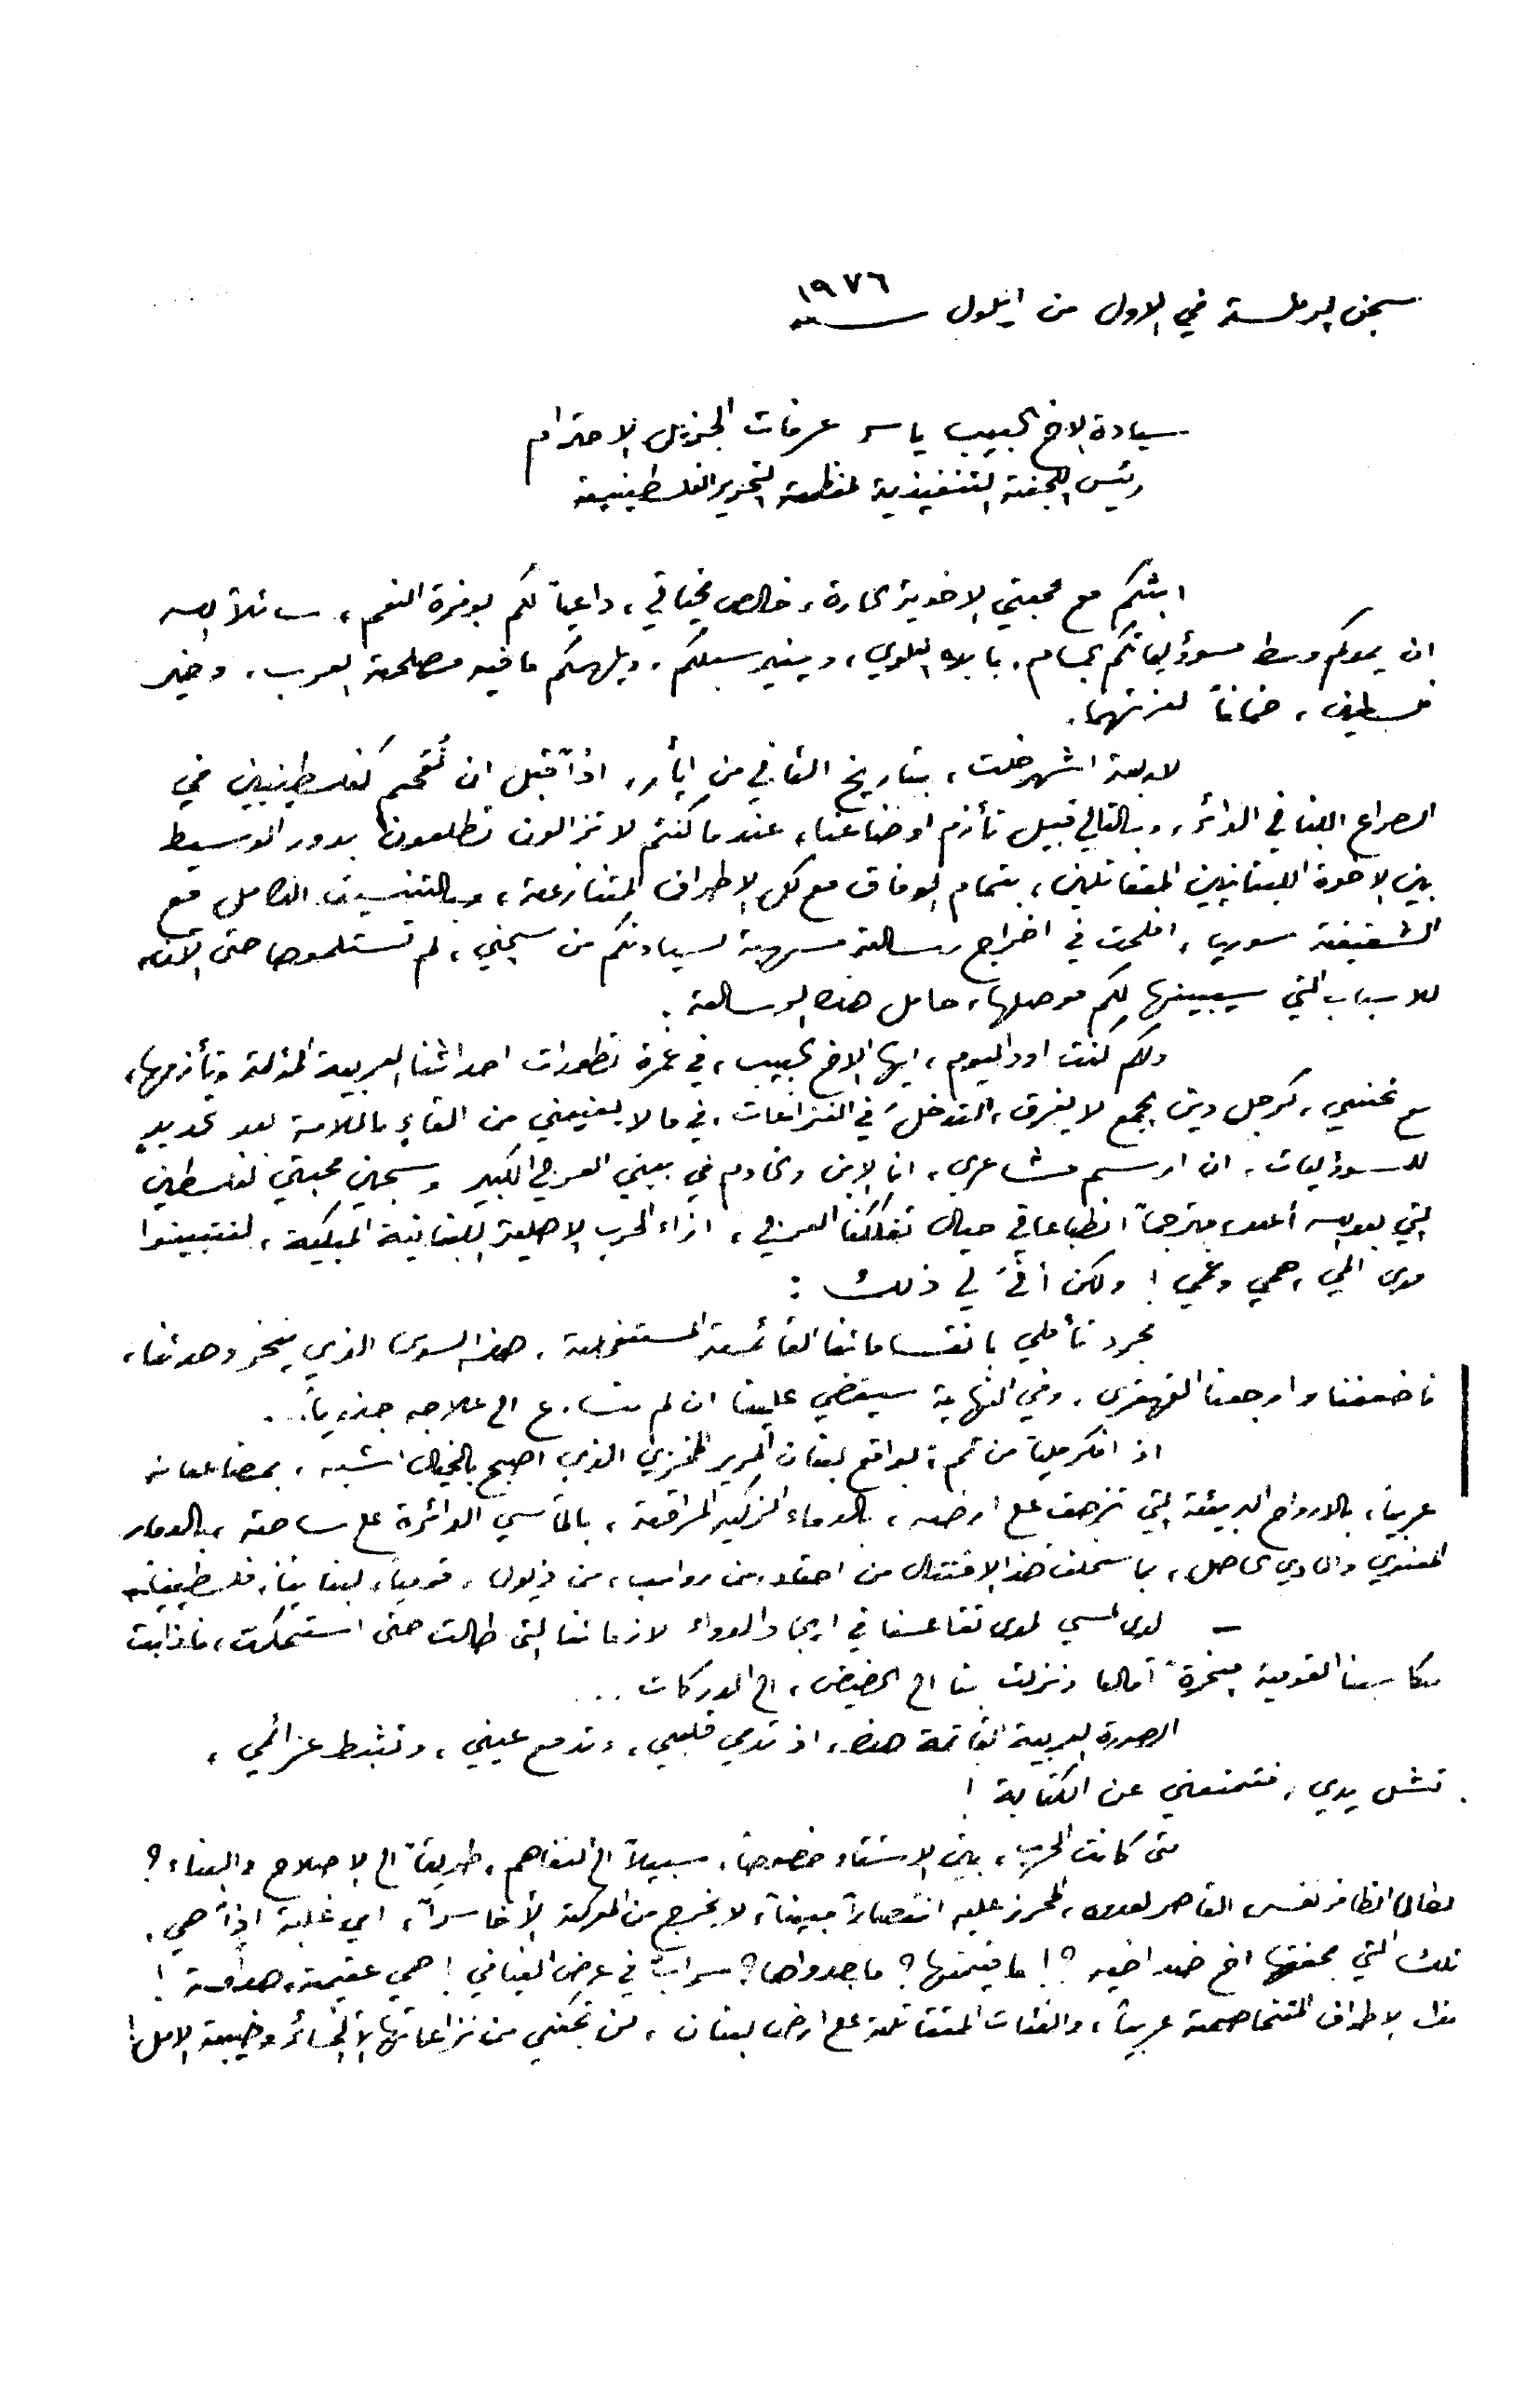 سجن الرملة في الاول من ايلول سنة ١٩٧٦
سيادة الاخ الحبيب ياسر عرفات الجزيل الاحترام
رئيس اللجنة التنفيذية لمنظمة التحرير الفلسطينية
ابثكم مع محبتي الاخوية الحارة، خالص تحياتي، داعياً لكم بوفرة النعم، سائلاً الله
ان يمدكم وسط مسؤولياتكم الجسام، بالايد العلوي، وينير سبلكم، ويلهمكم ما فيه مصلحة العرب، وخير
فلسطين، ضماناً لعزتهما.
لاربعة اشهر خلت، بتاريخ الثاني من أيار، اذاً قبل ان نُقحم كفلسطينيين في
الصراع اللبناني الدائر، وبالتالي قبيل تأزم اوضاعنا، عندما كنتم لا تزالون تطلعون بدور الوسيط
بين الاخوة اللبنانيين المتقاتلين، بتمام الوفاق مع كل الاطراف المتنازعة، وبالتنسيق الكامل مع
الشقيقة سوريا، افلحت في اخراج رسالة مسهبة لسيادتكم من سجني، لم تستلموها حتى الآن
للاسباب التي سيبينها لكم موصلها، حامل هذه الرسالة.
ولكم كنت اود اليوم، ايها الاخ الحبيب، في غمرة تطورات احداثنا العربية المؤلمة وتأزمها،
مع تجنبي، كرجل دين يجمع لا يفرق، التدخلَ في النزاعات، في ما لا يعنيني من القاءٍ بالملامة بعد تحديدٍ
للمسؤوليات، ان ارسم مشاعري، انا الابن والخادم في بيتي العربي الكبير وسجين محبتي لفلسطين
التي بعد الله أعبد، مترجماً انطباعاتي حيال تفككنا العربي، ازاء الحرب الاهلية اللبنانية المبكية، لتتبينوا
مدى المي، همي وغمي! ولكن أنّى لي ذلك:
مجرد تأملي بانقساماتنا القائمة المستفحلة، هذا السوس الذي ينخر وحدتنا،
فاضعفنا وارجعنا القهقرى، وفي النهاية سيقضي علينا ان لم نتسارع الى علاجه جذرياً..
اذ افكر ملياً من ثم: بواقع لبنان المرير المخزي الذي اصبح بالخيال اشبه، بمضاعفاته
عربياً، بالارواح البريئة التي تزهق على ارضه، بالدماء الزكية المراقة، بالمآسي الدائرة على ساحته، بالدمار
المعنوي والمادي الحاصل، بما سيخلف هذا الاقتتال من احقاد، من رواسب، من ذيول، قومياً، لبنانياً، فلسطينياً
لدى لمسي لمدى تقاعسنا في ايجاد الدواء لازماتنا التي طالت حتى استحكمت، فاذابت
مكاسبنا القومية مبخرةً آمالنا ونزلت بنا الى الحضيض، الى الدركات...
الصورة العربية القاتمة هذه، اذ تدمي قلبي، وتدمع عيني، وتثبط عزائمي،
تشل يدي، فتمنعني عن الكتابة!
متى كانت الحرب، بين الاشقاء خصوصاً، سبيلاً الى التفاهم، طريقاً الى الاصلاح والبناء؟
الظافر نفسه القاهر لعدوه، المحرز عليه انتصاراً مبيناً، لا يخرج من المعركة إلا خاسراً، اي غلبة اذاً هي،
تلك التي يحققها اخ ضد اخيه؟! ما قيمتها؟ ما جدواها؟ سراب في عرض الفيافي! هي عقيمة، هدامة!
الاطراف المتخاصمة عربياً، والفئات المتقاتلة على ارض لبنان، لن تجتني من نزاعاتها إلا الخسائر وخيبة الامل!